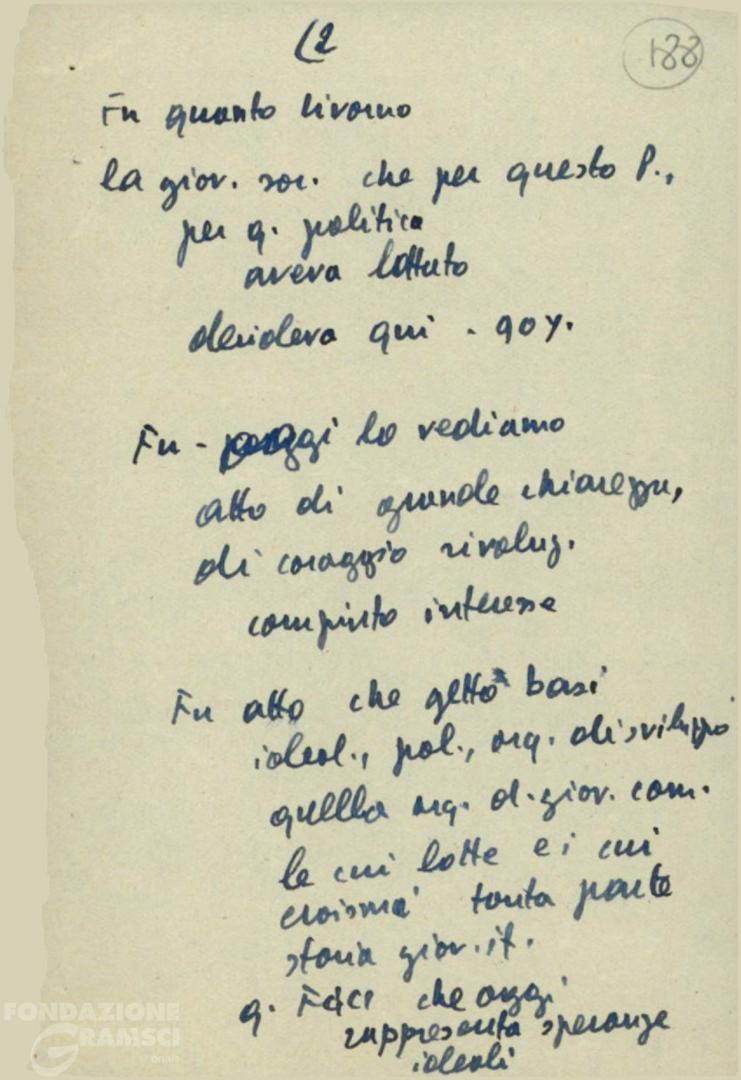 (2
188
Fu quanto Livorno
la giov. soc. che per questo P.,
per q. politica
aveva lottato
decideva qui - 90%.
Fu - oggi lo vediamo
atto di grande chiarezza,
di coraggio rivoluz.
compiuto interesse
Fu atto che gettò basi
ideol., pol., org. di sviluppo
quella org. d. giov. com.
le cui lotte e i cui
eroismi tanta parte
storia giov. it.
q. FGCI che oggi
rappresenta speranze
ideali
FONDAZIONE
GRAMSCI